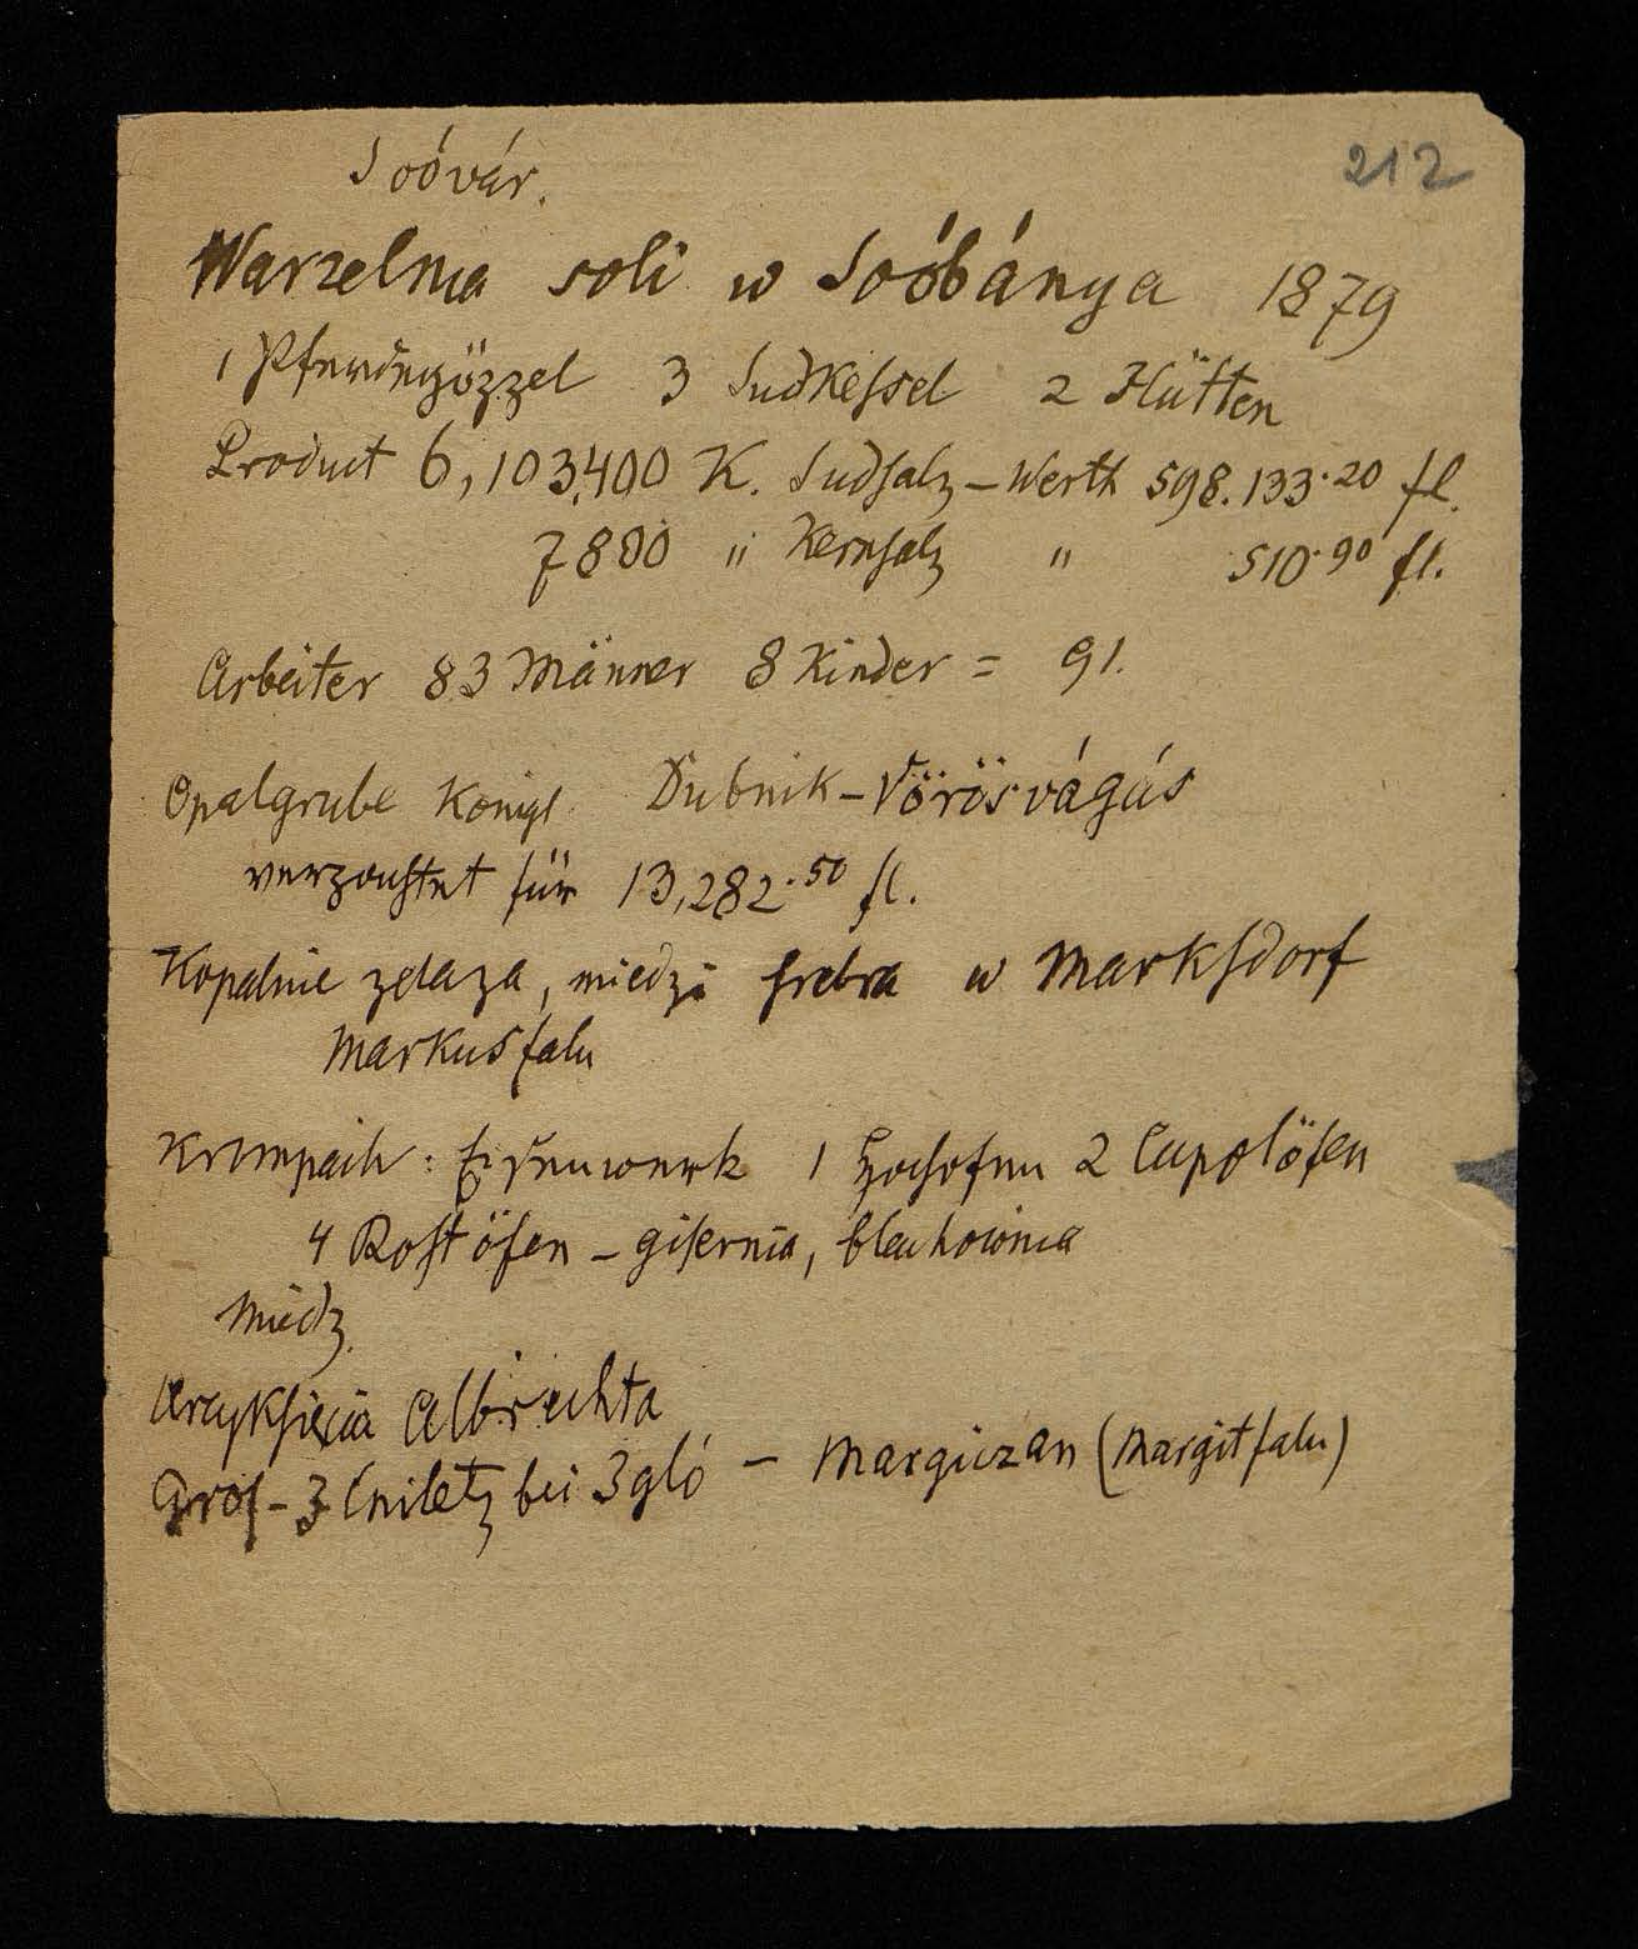 212
Soóvár.
Warzelnia soli w Soóbánya 1879
1 Pferdegözzel 3 Sudkessel 2 Hütten
Product 6,103,400 K. Sudsalz – Werth 598.133·20 fl.
7800 " Kernsalz " 510·90 fl.
Arbeiter 83 Männer 8 Kinder = 91.
Opalgrube Königl. Dubnik – Vörösvágás
für 13,282·50 fl.
Kopalnie żelaza, miedzi srebra w Marksdorf
Markusfalu
Krompach : Eisenwerk 1 Hochofen 2 Cupolöfen
4 Rostöfen – gisernia, blachownia
Miedz.
Arcyksięcia Albrechta
bei Igló – Margiczan (Margitfalu)